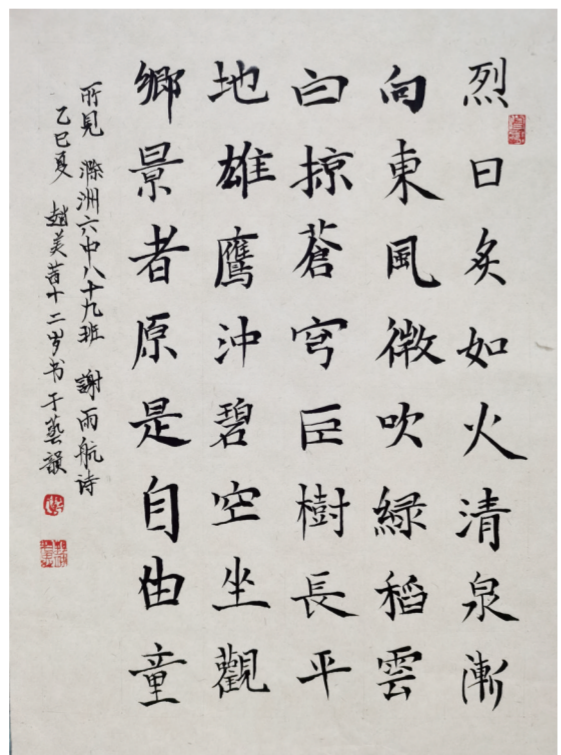 烈日炙如火清泉漸
向東風微吹綠稻雲
白掠蒼穹巨樹長平
地雄鷹沖碧空坐觀
鄉景者原是自由童
所見 滁洲六中八十九班 謝雨航诗
乙巳夏 趙美茜十二岁书于藝韻